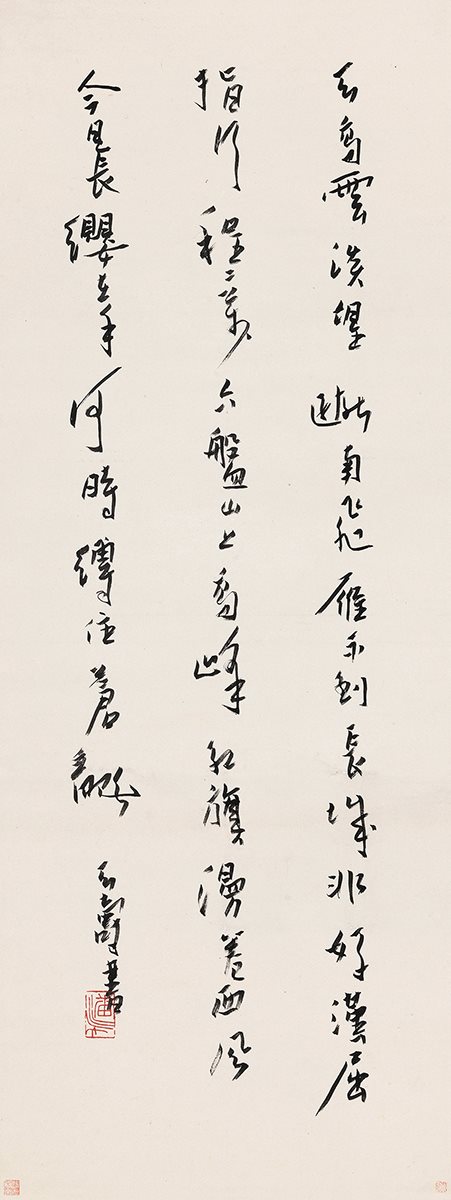 天高雲淡望斷南飛雁不到長城非好漢屈
指行程二萬六盤山上高峰紅旗漫卷西風
今日長纓在手何時縛住蒼龍 天壽書